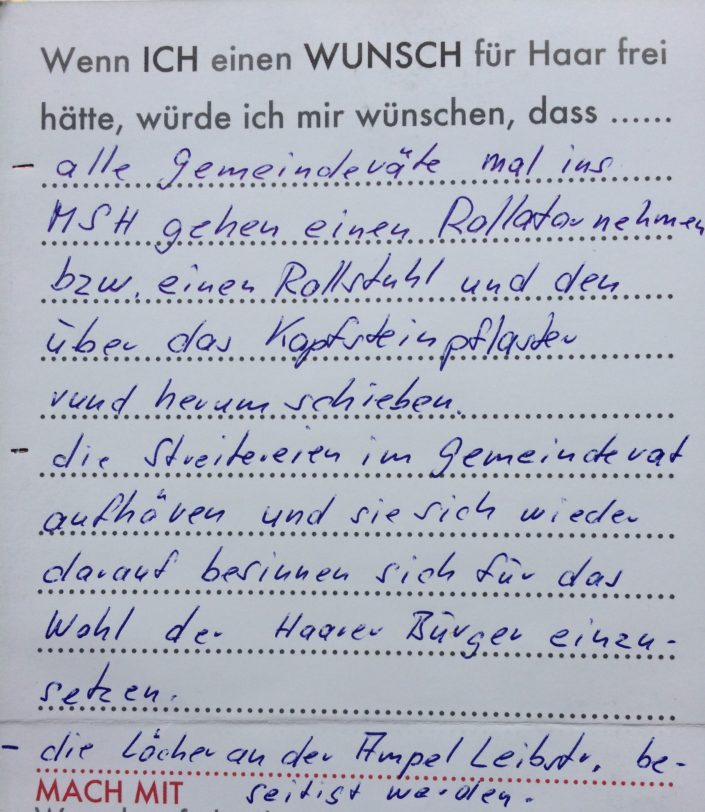 Wenn ICH einen WUNSCH für Haar frei
hätte, würde ich mir wünschen, dass ......
- alle Gemeinderäte mal ins
MSH gehen einen Rollator nehmen
bzw. einen Rollstuhl und den
über das Kopfsteinpflaster
rund herum schieben.
- die Streitereien im Gemeinderat
aufhören und sie sich wieder
darauf besinnen sich für das
Wohl der Haarer Bürger einzu-
setzen.
- die Löcher an der Ampel Leibstr. be-
MACH MIT seitigt werden.